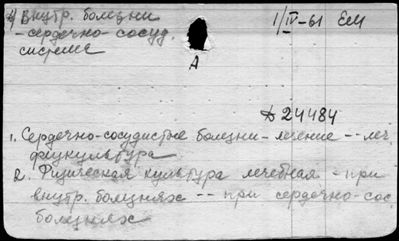 4) Внутр. болезни
- сердечно-сосуд. система
1/IV-61 ЕМ
А
24484
1. Сердечно-сосудистые болезни - лечение -- леч. физкультура
2. Физическая культура лечебная - при внутр. болезнях -- при сердечно-сос. болезнях